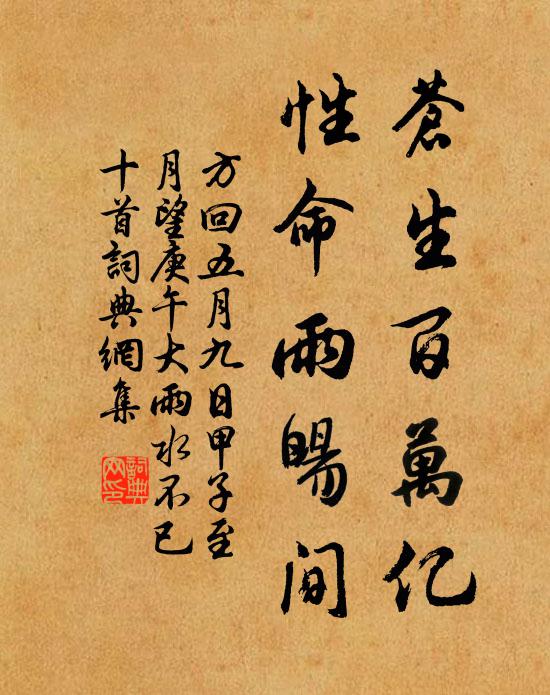 蒼生百萬亿
性命雨暘间
方回五月九日甲子至
月望庚午大雨水不已
十首詞典網集
詞典
网印